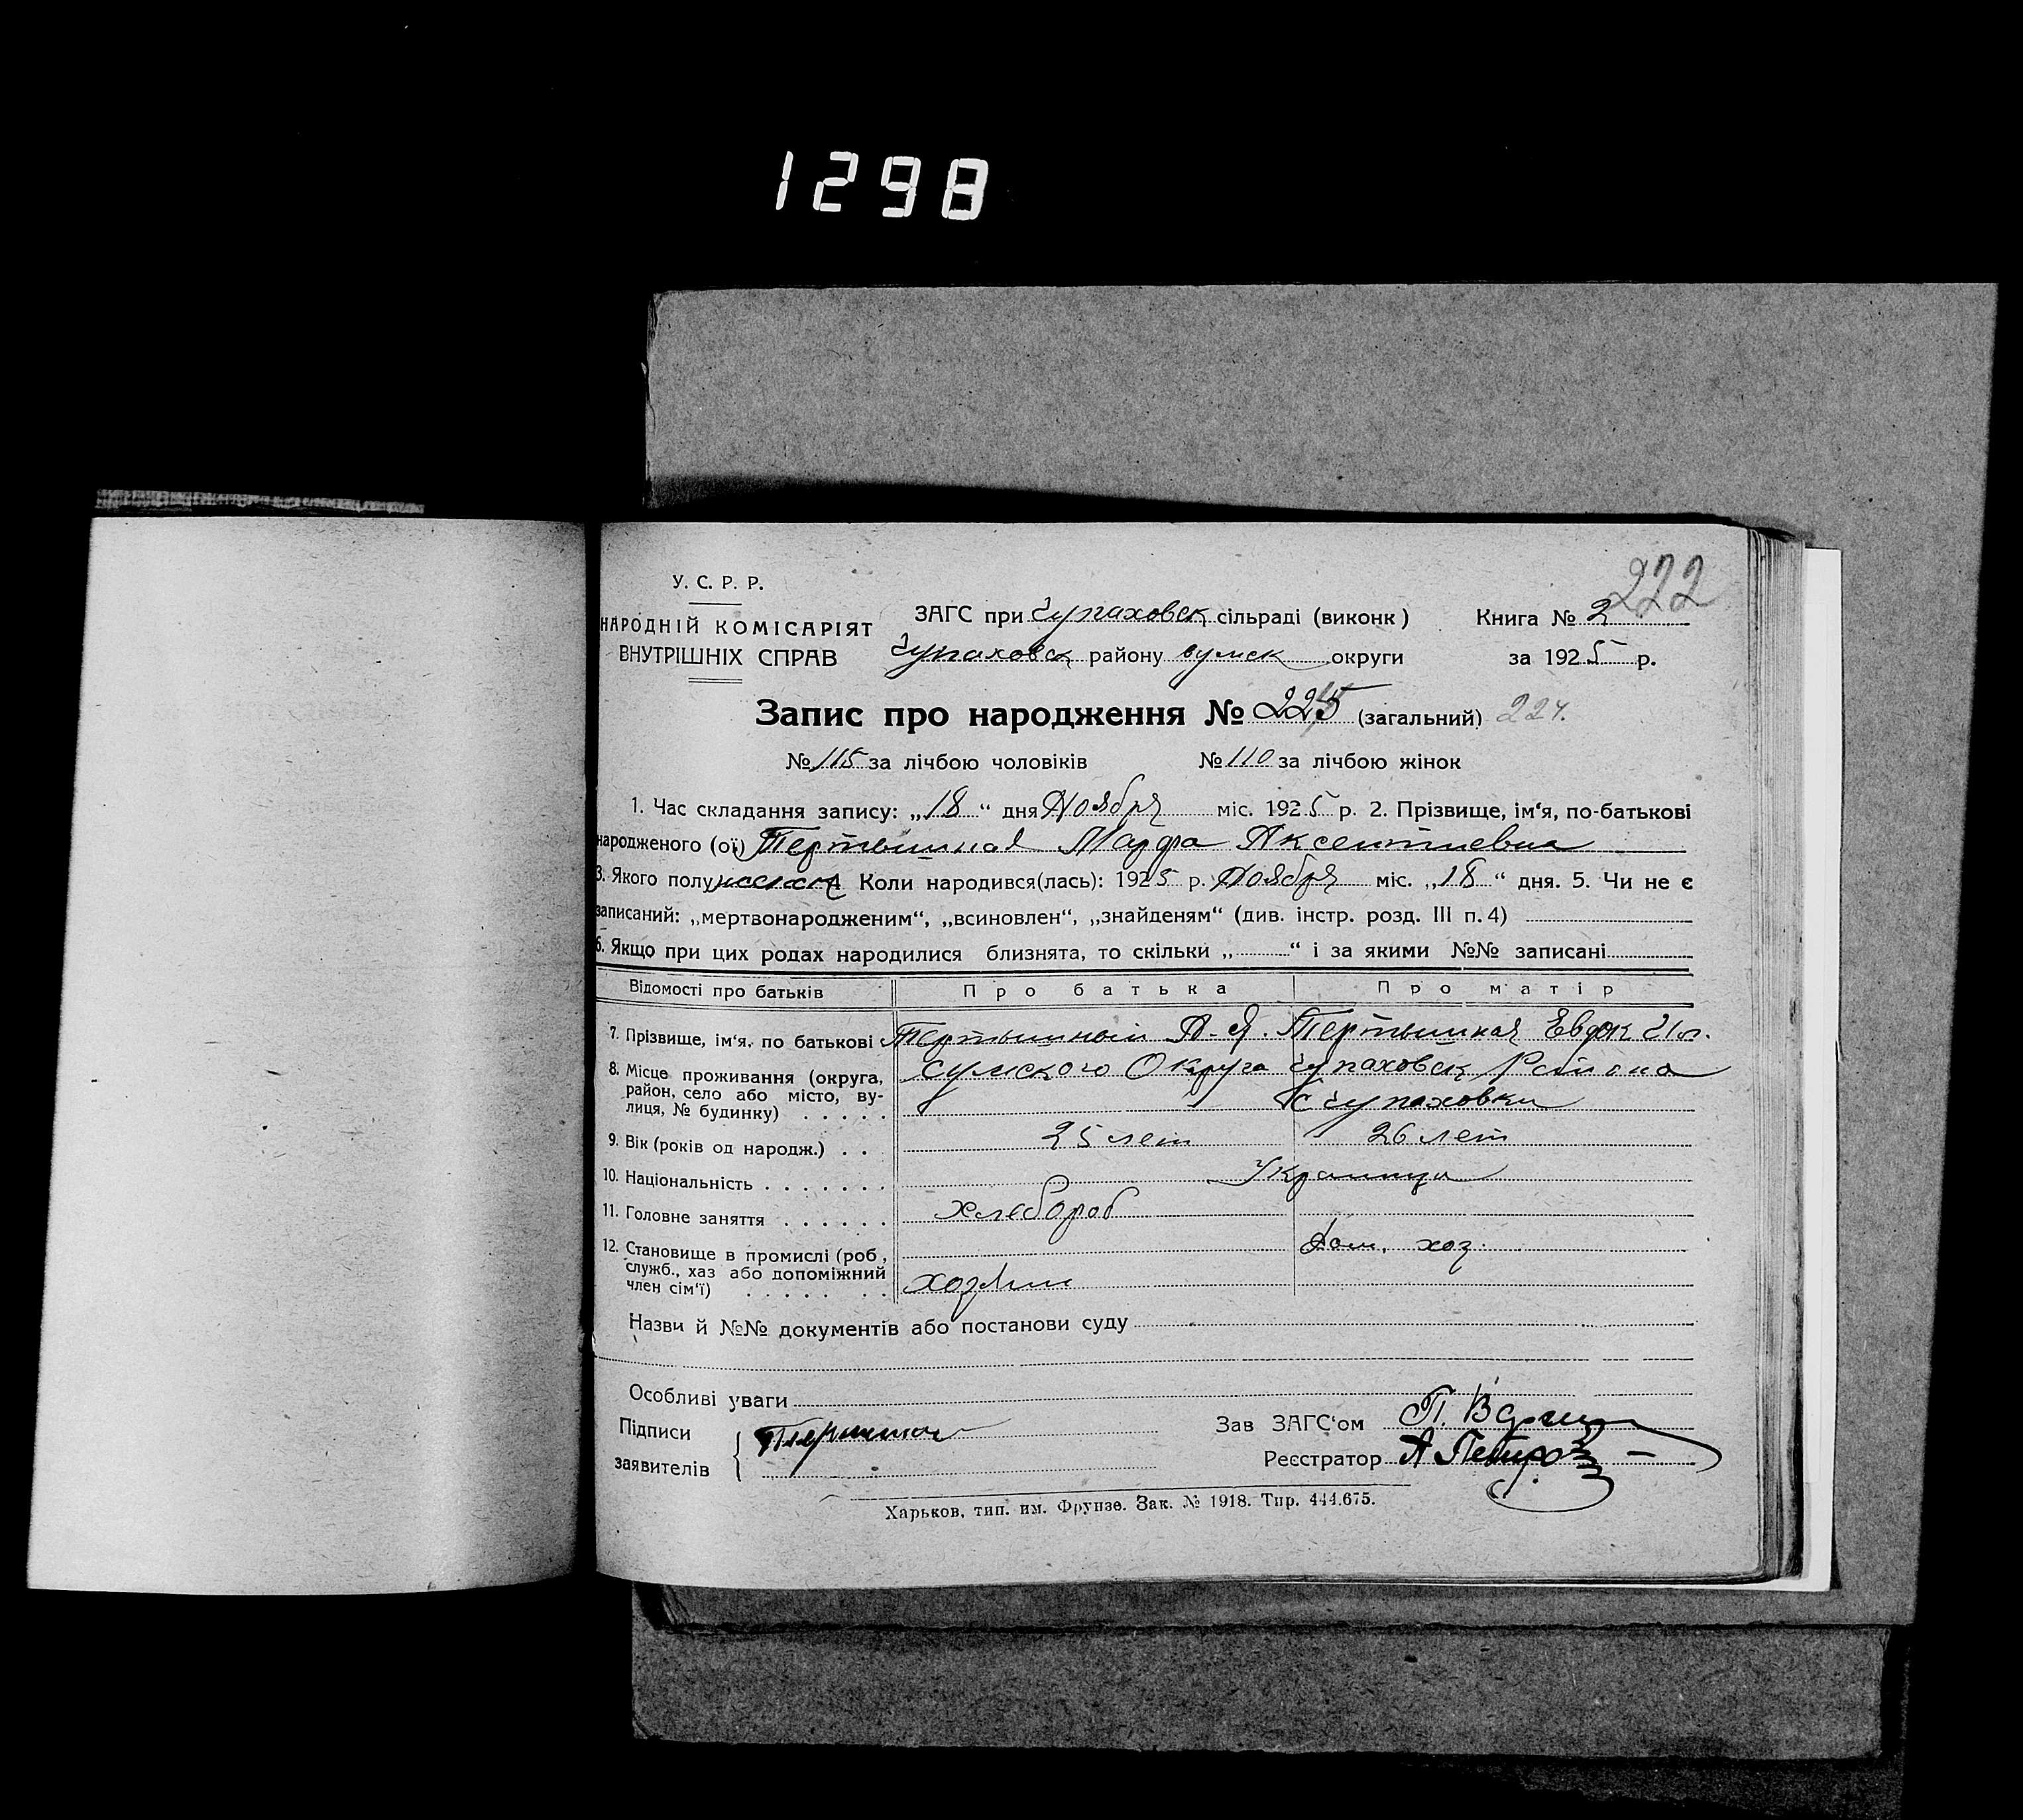 1298
222
У. С. Р. Р.
НАРОДНІЙ КОМІСАРІЯТ
ВНУТРІШНІХ СПРАВ
ЗАГС при Чупаховск сільраді (виконк)
Чупаховск району Сумск округи
Книга № 2
за 1925 р.
Запис про народження № 225 (загальний) 224.
№ 115 за лічбою чоловіків № 110 за лічбою жінок
1. Час складання запису: „18“ дня Ноября міс. 1925 р. 2. Прізвище, ім‘я, по-батькові
народженого (ої) Тертышная Марфа Аксентиевна
3. Якого полу женск 4 Коли народився(лась): 1925 р. Ноября міс. „18“ дня. 5. Чи не є
записаний: „мертвонародженим“, „всиновлен“, „знайденям“ (див. інстр. розд. III п. 4)
6. Якщо при цих родах народилися близнята, то скільки „ “ і за якими №№ записані
Відомості про батьків Про батька Про матір
7. Прізвище, ім‘я, по батькові Тертышный А-Я. Тертышная Евдок
8. Місце проживання (округа, Сумского Округа Чупаховск Района
район, село або місто, ву-
лиця, № будинку) с Чупаховки
9. Вік (років од народж.) 25 лет 26 лет
10. Національність Украинци
11. Головне заняття хлебороб
12. Становище в промислі (роб, Дом. хоз.
служб., хаз або допоміжний
член сім‘ї) хозяин
Назви й №№ документів або постанови суду
Особливі уваги
Підписи
заявителів
Зав ЗАГС‘ом П.
Реєстратор А Петров
Харьков, тип. им. Фрунзе. Зак. № 1918. Тир. 444.675.